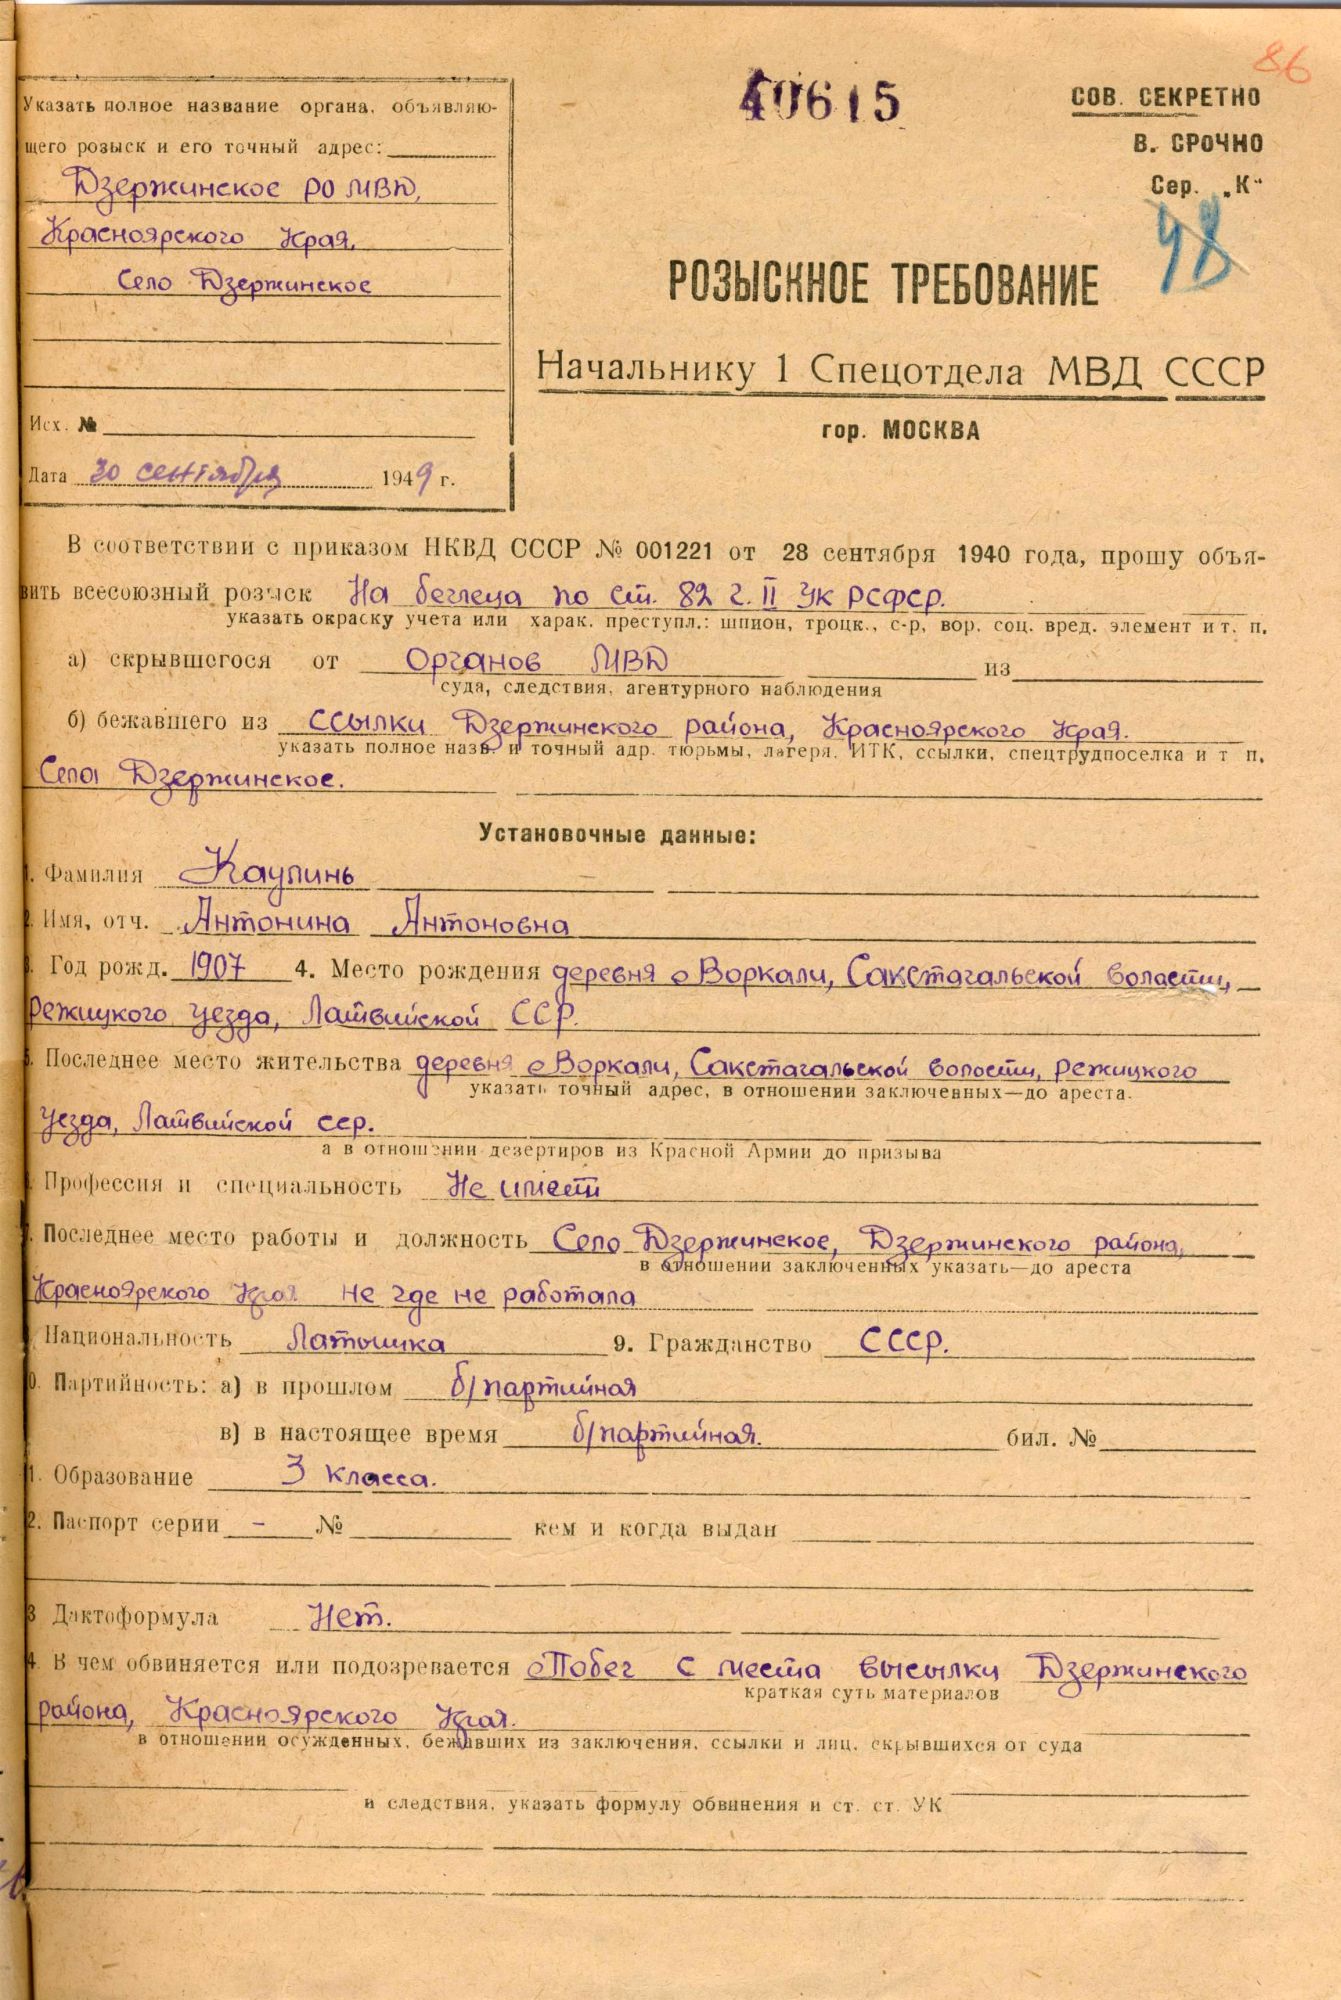 86
40615
СОВ. СЕКРЕТНО
В. СРОЧНО
Сер. „К“
48
Указать полное название органа, объявляю-
щего розыск и его точный адрес:
Дзержинское РО МВД,
Красноярского Края.
Село Дзержинское
Исх. №
Дата 30 сентября 1949 г.
РОЗЫСКНОЕ ТРЕБОВАНИЕ
Начальнику 1 Спецотдела МВД СССР
гор. МОСКВА
В соответствии с приказом НКВД СССР № 001221 от 28 сентября 1940 года, прошу объя-
вить всесоюзный розыск На беглеца по ст. 82 г. II УК РСФСР.
указать окраску учета или харак. преступл.: шпион, троцк., с-р, вор. соц. вред. элемент и т. п.
а) скрывшегося от Органов МВД из
суда, следствия, агентурного наблюдения
б) бежавшего из ссылки Дзержинского района, Красноярского Края.
указать полное назв. и точный адр. тюрьмы, лагеря, ИТК, ссылки, спецтрудпоселка и т п.
Село Дзержинское.
Установочные данные:
1. Фамилия Каулинь
2. Имя, отч. Антонина Антоновна
3. Год рожд. 1907 4. Место рождения деревня Воркали, Сакстагальской воласти,
Режицкого уезда, Латвийской ССР.
5. Последнее место жительства деревня Воркали, Сакстагальской волости, Режицкого
указать точный адрес, в отношении заключенных—до ареста.
уезда, Латвийской ССР.
а в отношении дезертиров из Красной Армии до призыва
Профессия и специальность Не имеет
7. Последнее место работы и должность Село Дзержинское, Дзержинского района,
в отношении заключенных указать—до ареста
Красноярского Края не где не работала
Национальность Латышка 9. Гражданство СССР.
0. Партийность: а) в прошлом б/партийная
в) в настоящее время б/партийная. бил. №
1. Образование 3 класса.
2. Паспорт серии - № кем и когда выдан
3 Дактоформула Нет.
4. В чем обвиняется или подозревается Побег с места высылки Дзержинского
краткая суть материалов
района, Красноярского Края.
в отношении осужденных, бежавших из заключения, ссылки и лиц, скрывшихся от суда
и следствия, указать формулу обвинения и ст. ст. УК